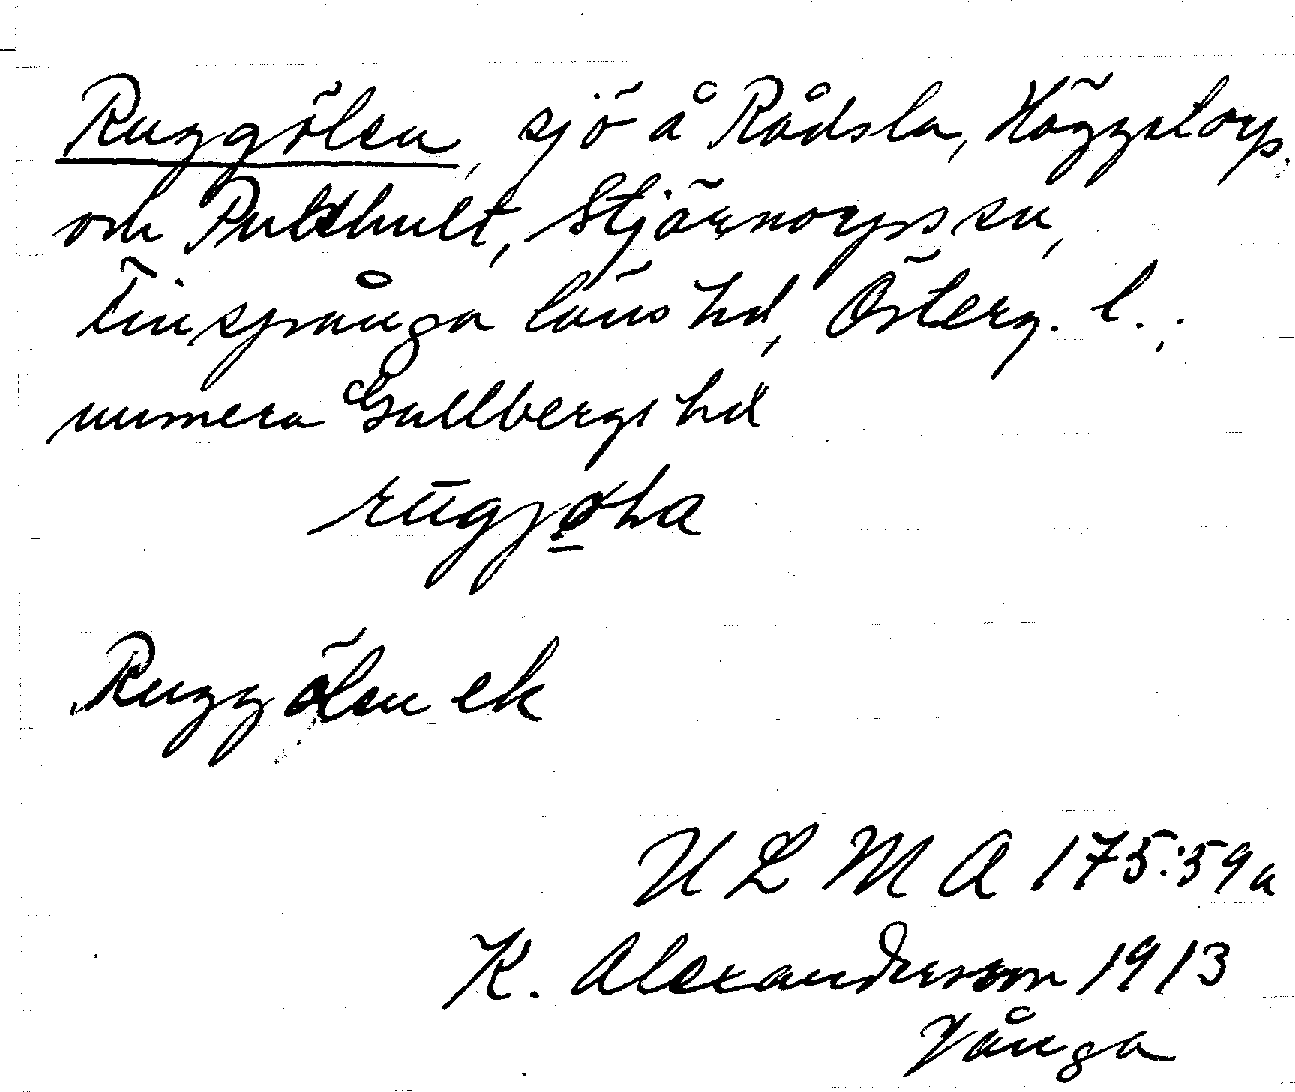 Ruggölen, sjö å Rådsla, Häggetorp
och Pulkhult, Stjärnorps sn,
Finspånga läns hd, Österg. l.,
numera Gullbergs hd
rūgjøla
Ruggölen ek
U L M A 175:59a
K. Alexandersson 1913
Vånga